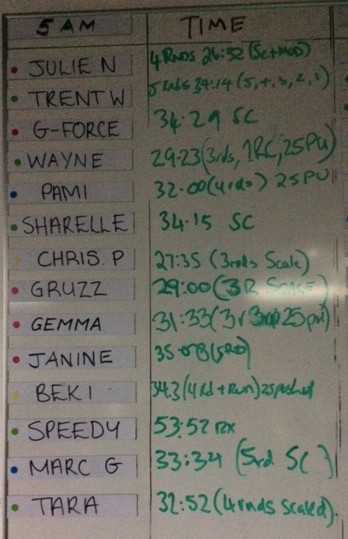 5 AM TIME
JULIE N 4 Rnds 26:32 (Sc+MOD)
TRENT W 5 Rnds 39:14 (5,4,3,2,1)
G-FORCE 34:29 SC
WAYNE 29:23 (3rds, 1RC, 25PU)
PAMI 32:00 (4rds) 25 PU
SHARELLE 34:15 SC
CHRIS P 27:35 (3rnds Scale)
GRUZZ 29:00 (3R SCALE)
GEMMA 31:33 (3r 25pu)
JANINE 35:08 (5RD)
BEKI 34:3 (4Rd + Run) 25
SPEEDY 53:52 RX
MARC G 33:34 (5rd SC)
TARA 32:52 (4rnds Scaled).